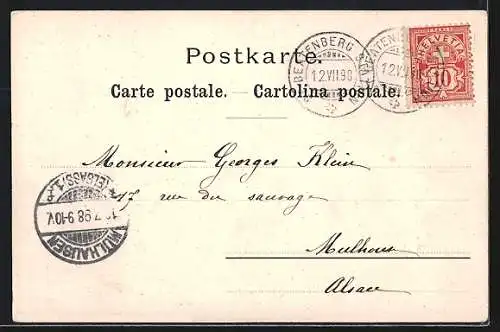 Postkarte.
Carte postale. Cartolina postale.
HELVETIA
10
BEATENBERG
12.VII.98
12.VII.98
Monsieur Georges Klein
17 rue du sauvage
Mulhouse
Alsace
MÜLHAUSEN
7.98.9-10V.
(ELSASS) 1.